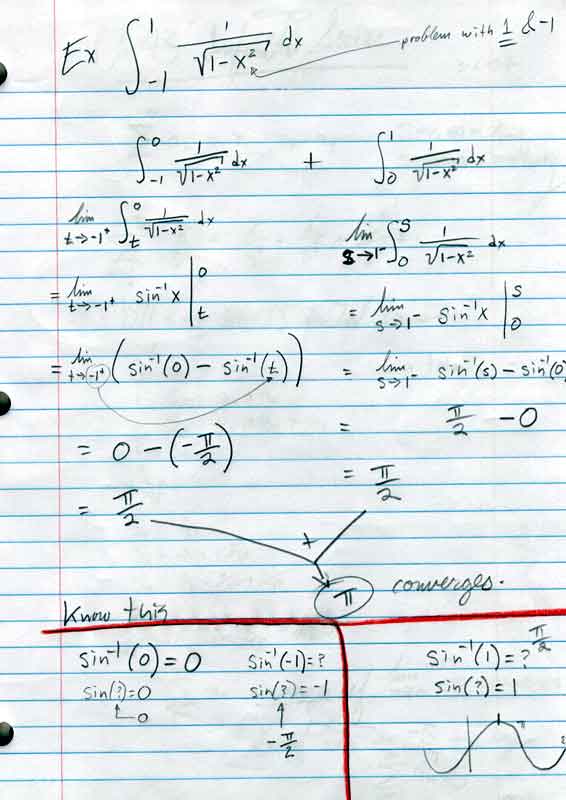 Ex ∫₋₁¹ 1/√(1-x²) dx problem with 1 & -1
∫₋₁⁰ 1/√(1-x²) dx + ∫₀¹ 1/√(1-x²) dx
lim t→-1⁺ ∫ₜ⁰ 1/√(1-x²) dx
lim s→1⁻ ∫₀ˢ 1/√(1-x²) dx
= lim t→-1⁺ sin⁻¹x |ₜ⁰
= lim s→1⁻ sin⁻¹x |₀ˢ
= lim t→-1⁺ (sin⁻¹(0) - sin⁻¹(t))
= lim s→1⁻ sin⁻¹(s) - sin⁻¹(0)
= 0 - (-π/2)
= π/2 - 0
= π/2
= π/2
+
π converges.
Know this
sin⁻¹(0) = 0
sin(?) = 0
0
sin⁻¹(-1) = ?
sin(?) = -1
-π/2
sin⁻¹(1) = ? π/2
sin(?) = 1